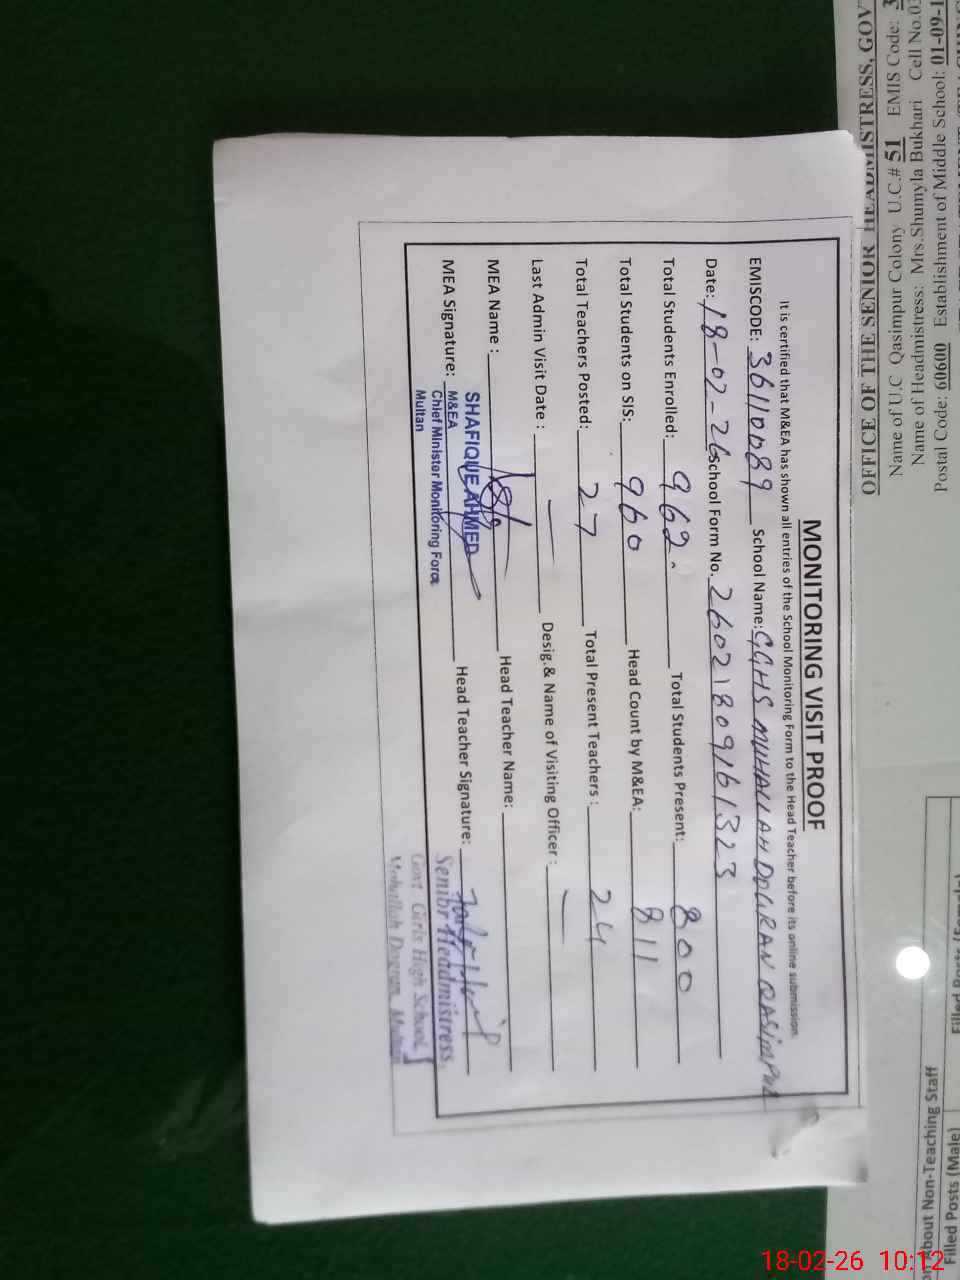 MONITORING VISIT PROOF
It is certified that M&EA has shown all entries of the School Monitoring Form to the Head Teacher before its online submission.
EMISCODE: 36110089 School Name: GGHS MUHALLAH DOGRAN QASIMPUR
Date: 18-02-26 School Form No. 26021809161323
Total Students Enrolled: 962. Total Students Present: 800
Total Students on SIS: 960 Head Count by M&EA: 811
Total Teachers Posted: 27 Total Present Teachers : 24
Last Admin Visit Date : — Desig.& Name of Visiting Officer : —
MEA Name : Head Teacher Name:
MEA Signature: Head Teacher Signature:
SHAFIQUE AHMED
M&EA
Chief Minister Monitoring Force
Multan
Senior Headmistress,
Govt. Girls High School
Mohallah Dogran, Multan
OFFICE OF THE SENIOR HEADMISTRESS, GOV
Name of U.C Qasimpur Colony U.C.# 51 EMIS Code: 3
Name of Headmistress: Mrs.Shumyla Bukhari Cell No.03
Postal Code: 60600 Establishment of Middle School: 01-09-1
About Non-Teaching Staff
Filled Posts (Male)
18-02-26 10:12